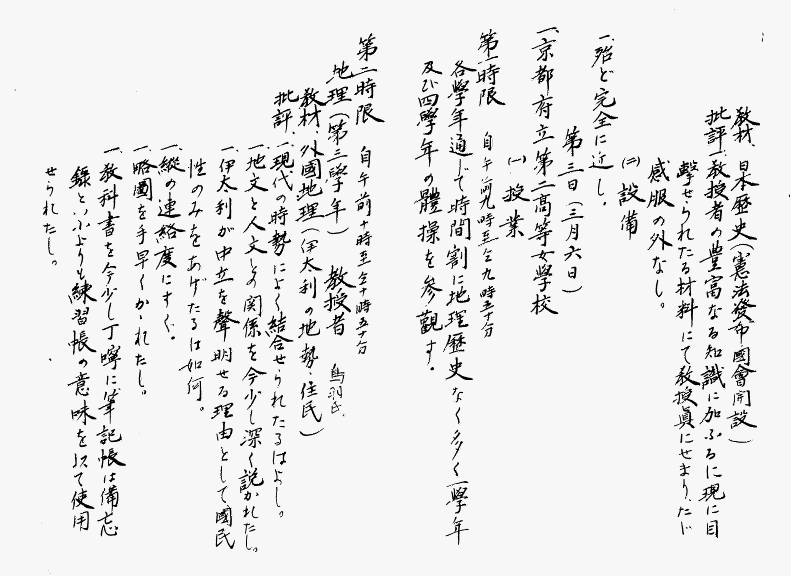 教材、日本歴史(憲法發布國會開設)
批評一、教授者の豊富なる知識に加ふるに現に目
撃せられたる材料にて教授眞にせまり、たゞ
感服の外なし。
㈡ 設備
一、殆ど完全に近し。
第三日(三月六日)
一、京都府立第二高等女学校
㈠ 授業
第一時限 自午前九時至仝九時五十分
各學年通じて時間割に地理歴史なく多く一學年
及び四學年の體操を参觀す。
第二時限 自午前十時至仝十時五十分
地理(第三學年) 教授者 鳥羽氏
教材、外國地理(伊太利の地勢、住民)
批評、一、現代の時勢によく結合せられたるはよし。
一、地文と人文との関係を今少し深く説かれたし。
一、伊太利が中立を聲明せる理由として國民
性のみをあげたるは如何。
一、縦の連絡度にすぐ。
一、略圖を手早くかゝれたし。
一、教科書を今少し丁寧に、筆記帳は備忘
録といふよりも練習帳の意味を以て使用
せられたし。